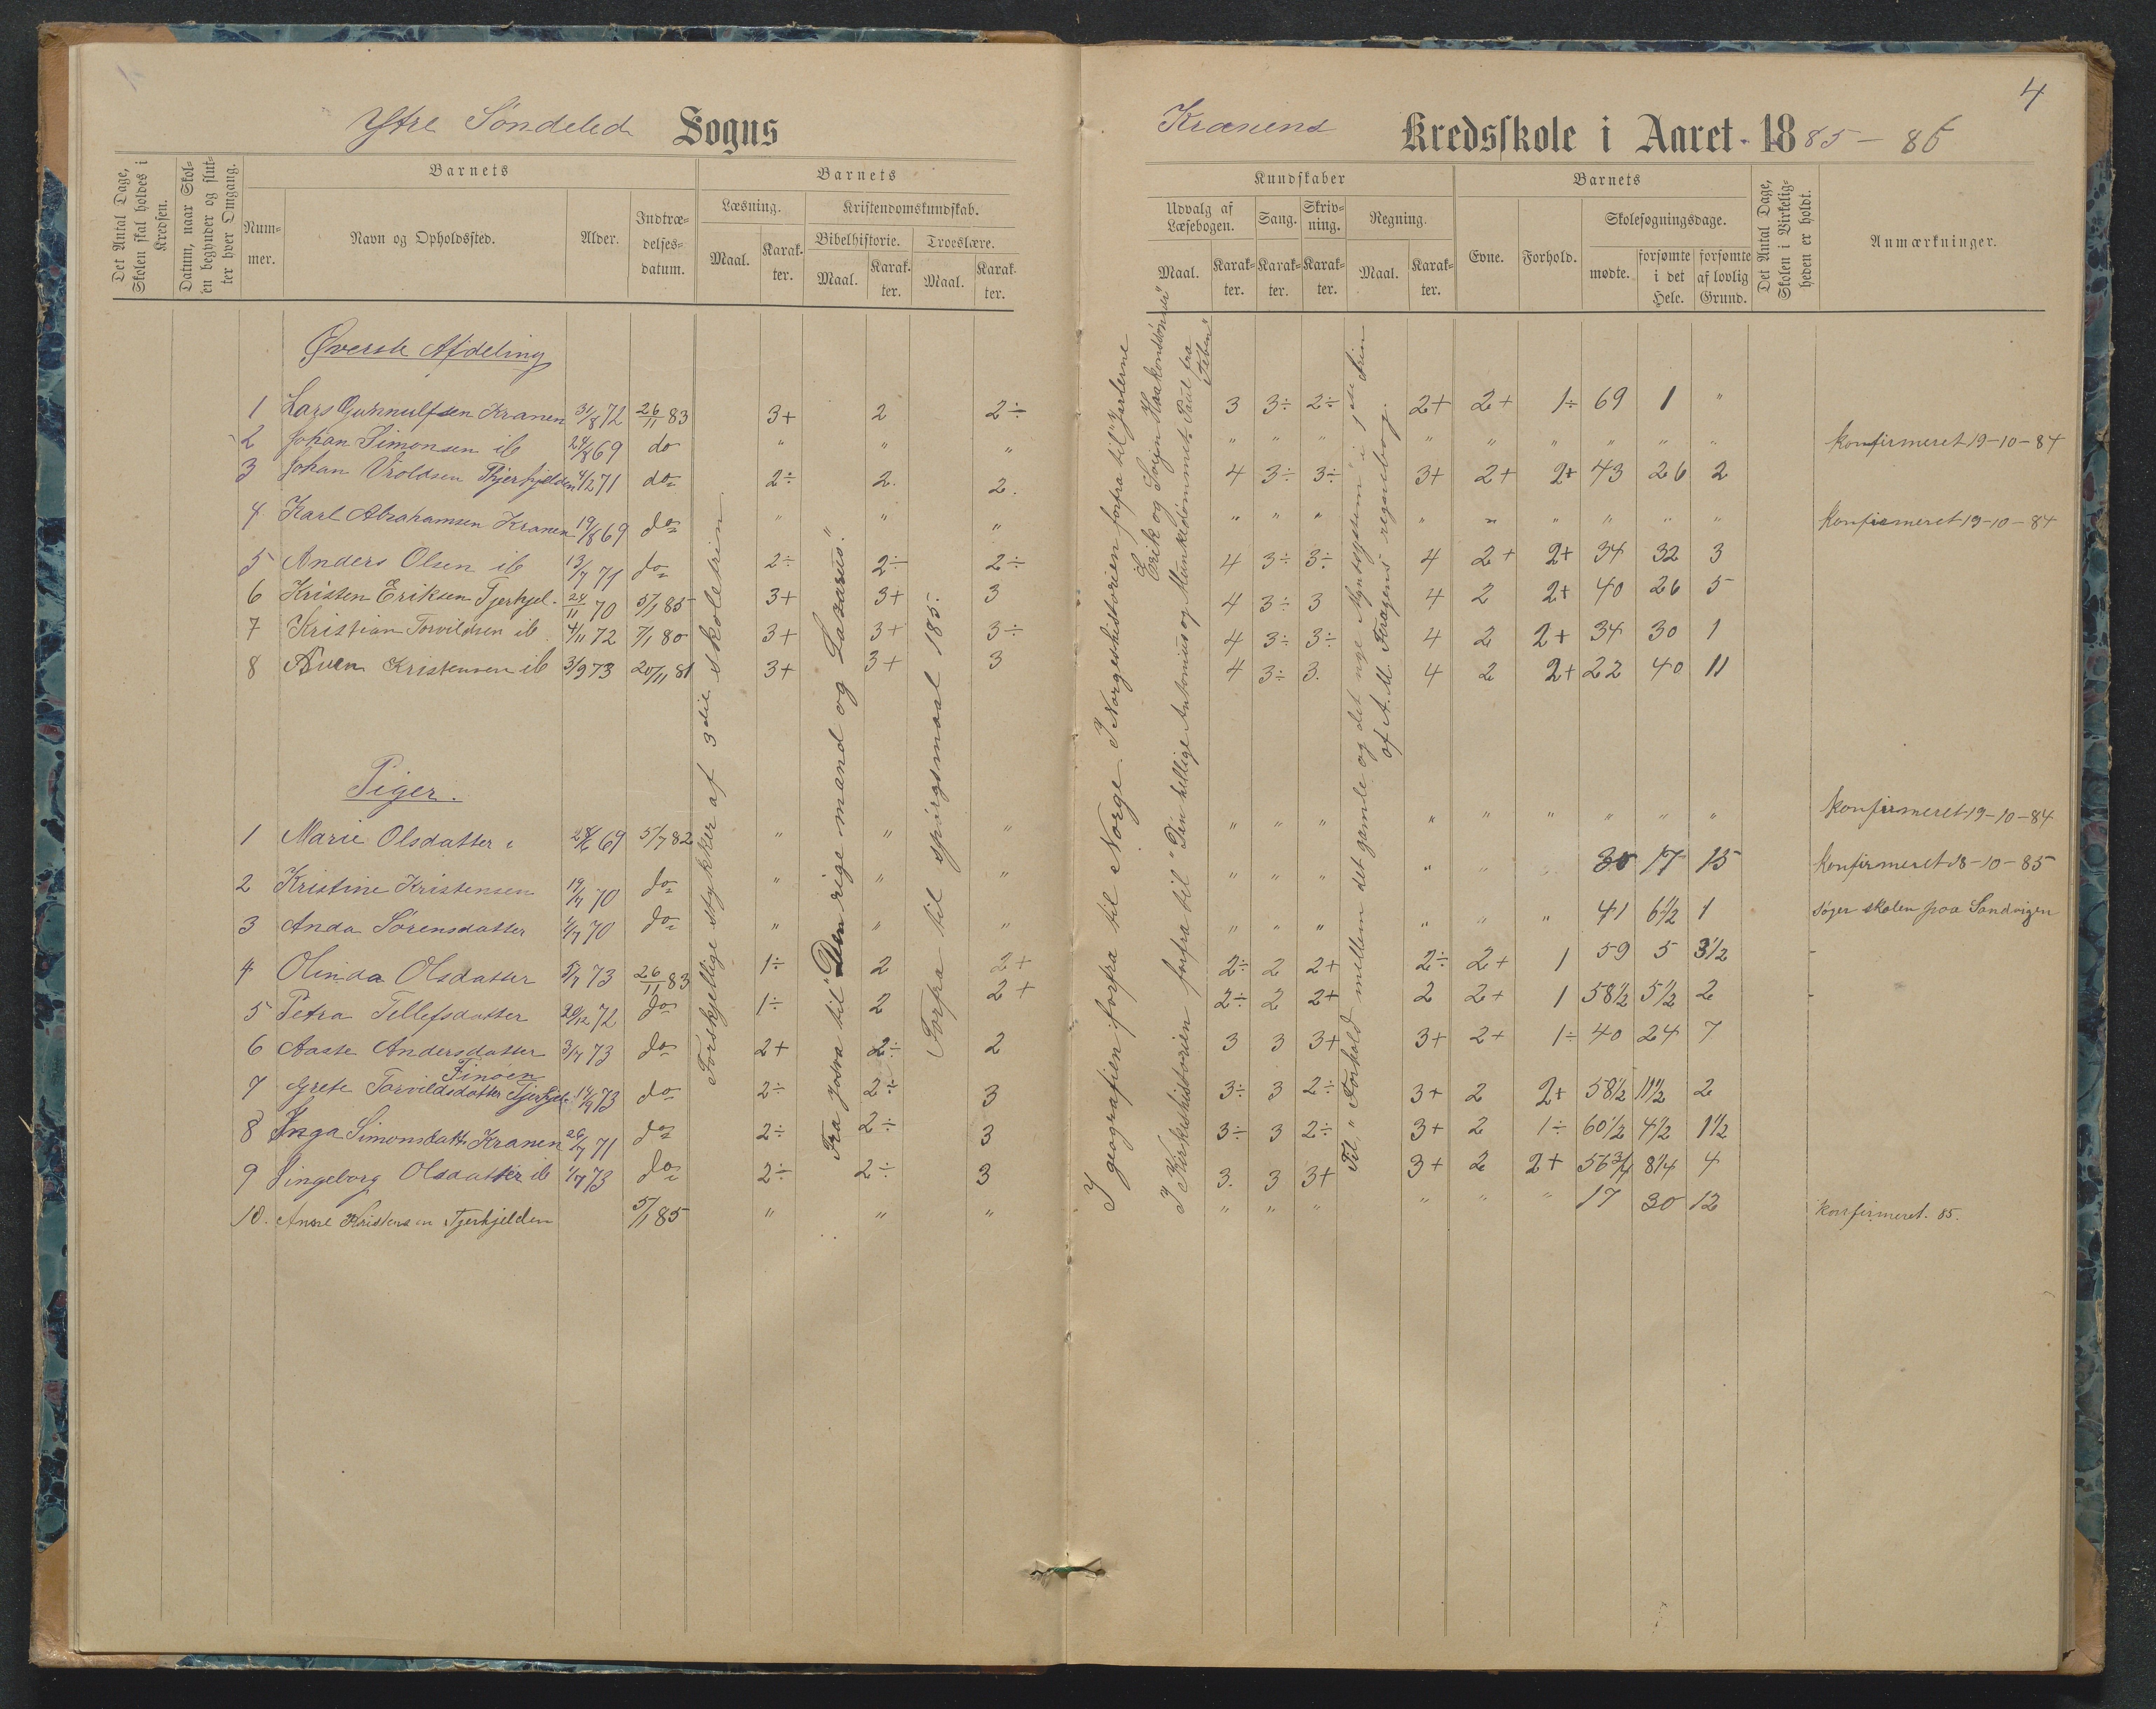 4
Ytre Søndeled Sogns
Kranens Kredsskole i Aaret 1885–86
Det Antal Dage, Skolen skal holdes i Kredsen.
Datum, naar Skolen begynder og slutter hver Omgang.
Barnets
Nummer.
Navn og Opholdssted.
Alder.
Indtrædelsesdatum.
Barnets
Læsning.
Maal.
Karakter.
Kristendomskundskab.
Bibelhistorie.
Maal.
Karakter.
Troeslære.
Maal.
Karakter.
Kundskaber
Udvalg af Læsebogen.
Maal.
Karakter.
Sang.
Karakter.
Skrivning.
Karakter.
Regning.
Maal.
Karakter.
Barnets
Evne.
Forhold.
Skolesøgningsdage.
mødte.
forsømte i det Hele.
forsømte af lovlig Grund.
Det Antal Dage, Skolen i Virkeligheden er holdt.
Anmærkninger.
Øverste Afdeling
1 Lars Gunnulfsen Kranen 31/8 72 26/11 83 3+ 2 2÷ 3 3÷ 2÷ 2+ 2+ 1÷ 69 1 "
2 Johan Simonsen ib 24/8 69 do " " " " " " " " " " " " konfirmeret 19-10-84
3 Johan Vroldsen Tjerkjelden 4/12 71 do 2÷ 2. 2. 4 3÷ 3÷ 3+ 2+ 2+ 43 26 2
4. Karl Abrahamsen Kranen 19/8 69 do " " " " " " " " " " " " konfirmeret 19-10-84
5 Anders Olsen ib 13/7 71 do 2÷ 2÷ 2÷ 4 3÷ 3÷ 4 2+ 2+ 34 32 3
6 Kristen Eriksen Tjerkjel. 24/11 70 5/1 85 3+ 3+ 3 4 3÷ 3 4 2 2+ 40 26 5
7 Kristian Torvildsen ib 4/11 72 7/1 80 3+ 3+ 3÷ 4 3÷ 3÷ 4 2 2+ 34 30 1
8 Kristensen ib 3/9 73 20/11 81 3+ 3+ 3 4 3÷ 3. 4 2 2+ 22 40 11
Piger.
1 Marie Olsdatter 69 5/7 82 " " " " " " " " " " " " konfirmeret 19-10-84
2 Kristine Kristensen 70 do " " " " " " " " 30 17 15 konfirmeret 18-10-85
3 Anda Sørensdatter 1/7 70 do " " " " " " " " " 41 6 1/2 1 søger skolen paa Sandvigen
4 Olinda Olsdatter 5/7 73 26/11 83 1÷ 2 2+ 2÷ 2 2+ 2÷ 2+ 1 59 5 3 1/2 -
5 Petra Tellefsdatter 29/12 72 do 1÷ 2 2+ 2÷ 2 2+ 2 2+ 1 58 1/2 5 1/2 2 -
6 Aaste Andersdatter 3/7 73 do 2+ 2÷ 2 3 3 3+ 3+ 2+ 1÷ 40 24 7
Finøen
7 Grete Torvildsdatter Tjerkjel. 14/9 73 do 2÷ 2÷ 3 3÷ 3 2÷ 3+ 2 2+ 58 1/2 11 1/2 2
8 Inga Simonsdatt Kranen 26/7 71 do 2÷ 2÷ 3 3÷ 3 2÷ 3+ 2 1÷ 60 1/2 4 1/2 1 1/2
9 Ingeborg Olsdatter ib 1/7 73 do 2÷ 2÷ 3 3. 3 3+ 3+ 2 2+ 56 3/4 8 1/4 4
10. Anne Kristensen Tjerkjelden 5/1 85 " " " " " " " " " 17 30 12 konfirmeret. 85.
Forskjellige stykker af 3die skoletrin.
Fra Josva til "Den rige mand og Lasarus."
Forfra til spørgsmaal 185.
I geografien forfra til Norge. I Norgeshistorien forfra til "Jarlerne
Erik og Svejn Haakonsønner"
I Kirkehistorien forfra til "Den hellige Antonius og Munkedømmet. Paul fra
Teben"
Til "Forhold mellem det gamle og det nye Myntsystem" i 1ste trin
af A. M. Feragens regnebog.